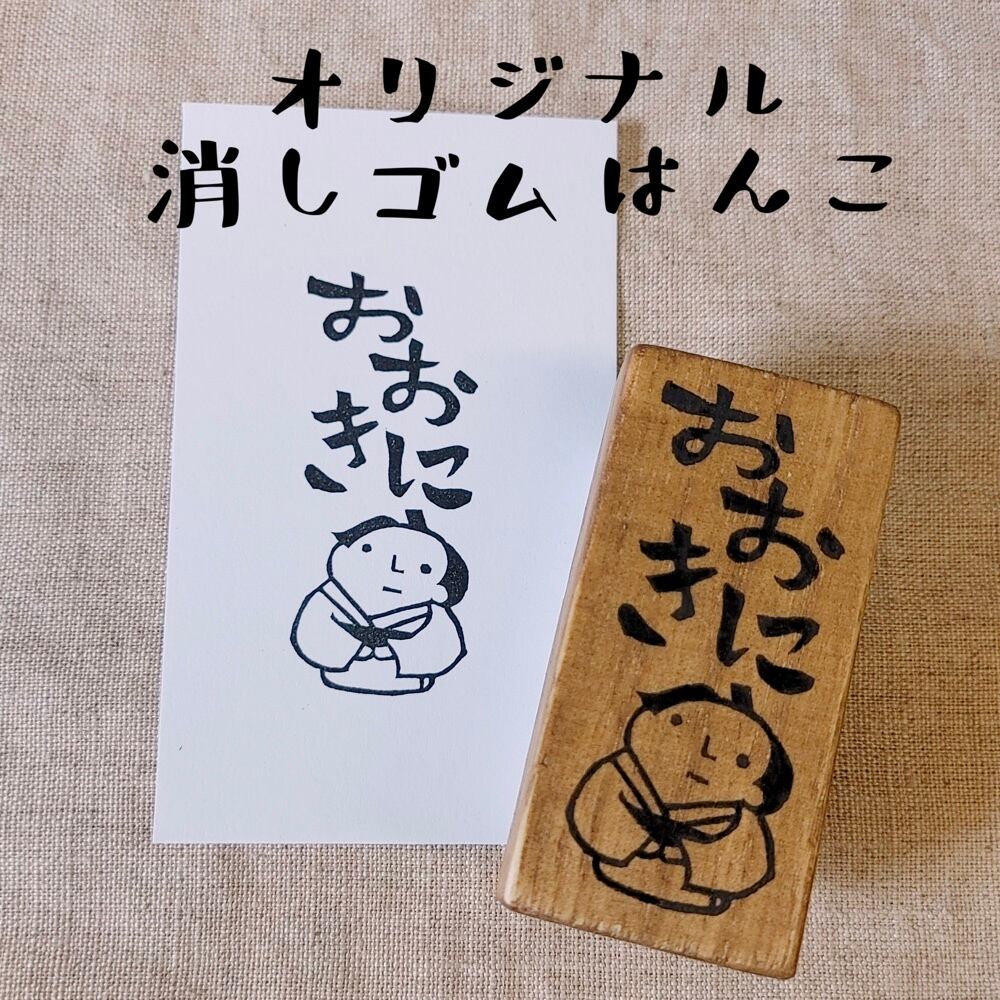 オリジナル
消しゴムはんこ
おおきに
おおきに